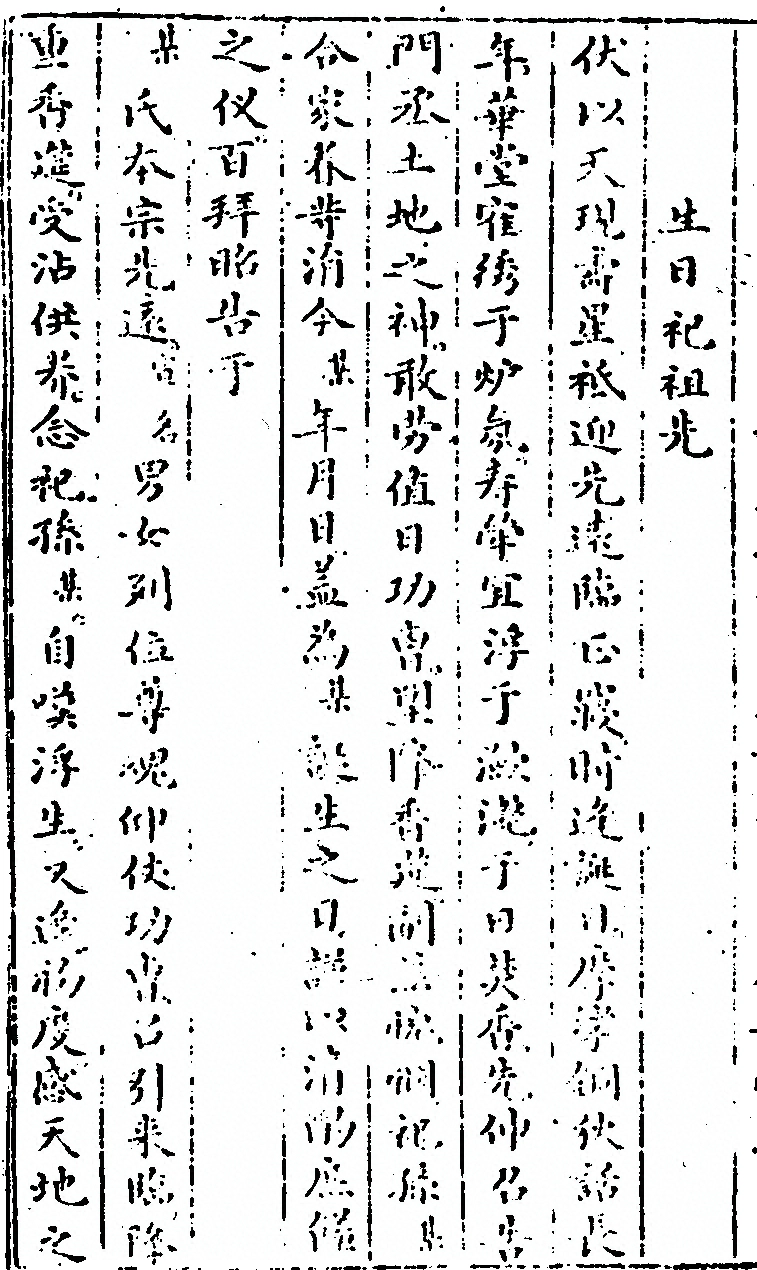 生日祀祖先
伏以天現壽星祗迎先遠臨正寢時逢誕日摩挲銅狄話長
年華堂寵綉于炉氛寿斝宜浮于瀲灔于日焚香先仰名告
門丞土地之神敢勞值日功曹堲降香筵副慈悃祀孫某
合家眷等涓今某年月日盖為某誕生之日謹以清酌庶饈
之仪百拜昭告于
某氏本宗先遠官名男女列位尊魂仰仗功曹召引來臨降
車香筵受沾供养念祀孫某自嘆浮生又逢初度感天地之